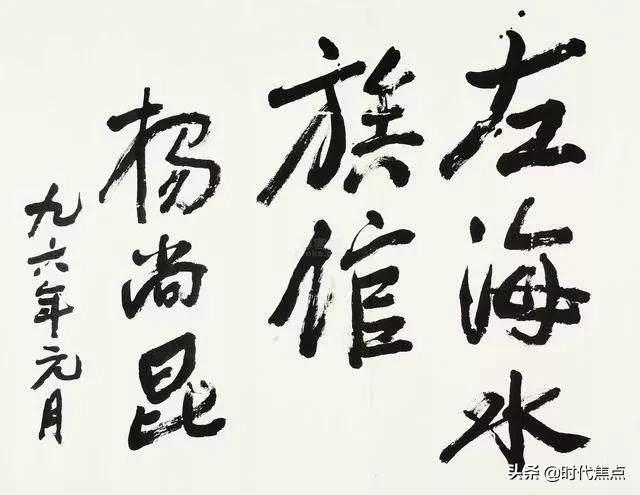 左海水
族馆
杨尚昆
九六年元月
头条 @时代焦点